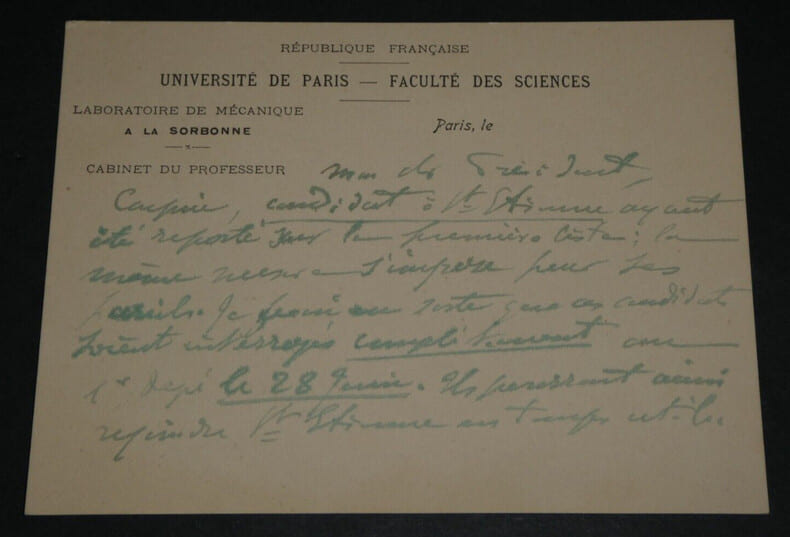 RÉPUBLIQUE FRANÇAISE
UNIVERSITÉ DE PARIS — FACULTÉ DES SCIENCES
LABORATOIRE DE MÉCANIQUE
A LA SORBONNE
Paris, le
CABINET DU PROFESSEUR
Mon ch Président,
candidat à St Etienne ayant
été reporté sur la première liste ; la
même mesure s'impose pour ses
pareils. Je ferai en sorte que ces candidats
soient interrogés complètement au
1er degré le 28 Juin. Ils pourront ainsi
rejoindre St Etienne en temps utile.